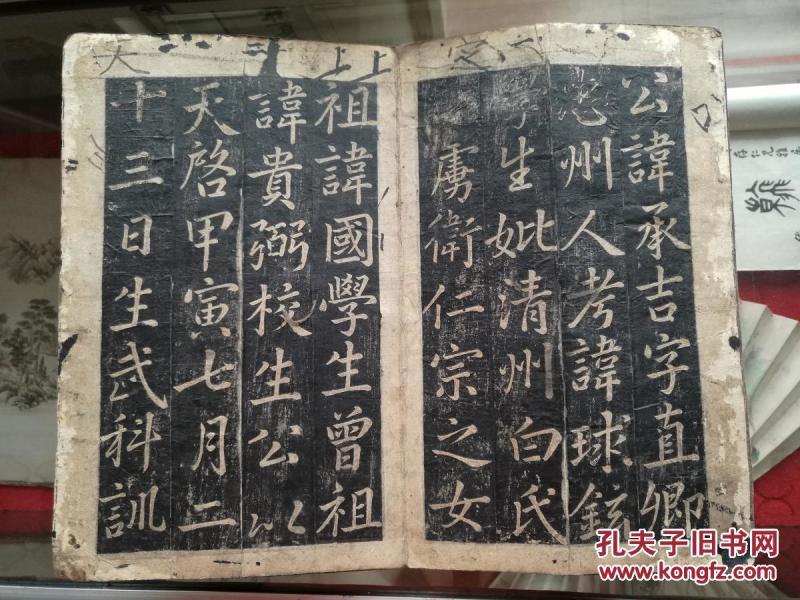 公諱承吉字直卿
忠州人考諱球鉉
學生妣清州白氏
虜衛仁宗之女
祖諱國學生曾祖
諱貴弼校生公以
天啓甲寅七月二
十三日生武科訓
孔夫子旧书网
www.kongfz.com